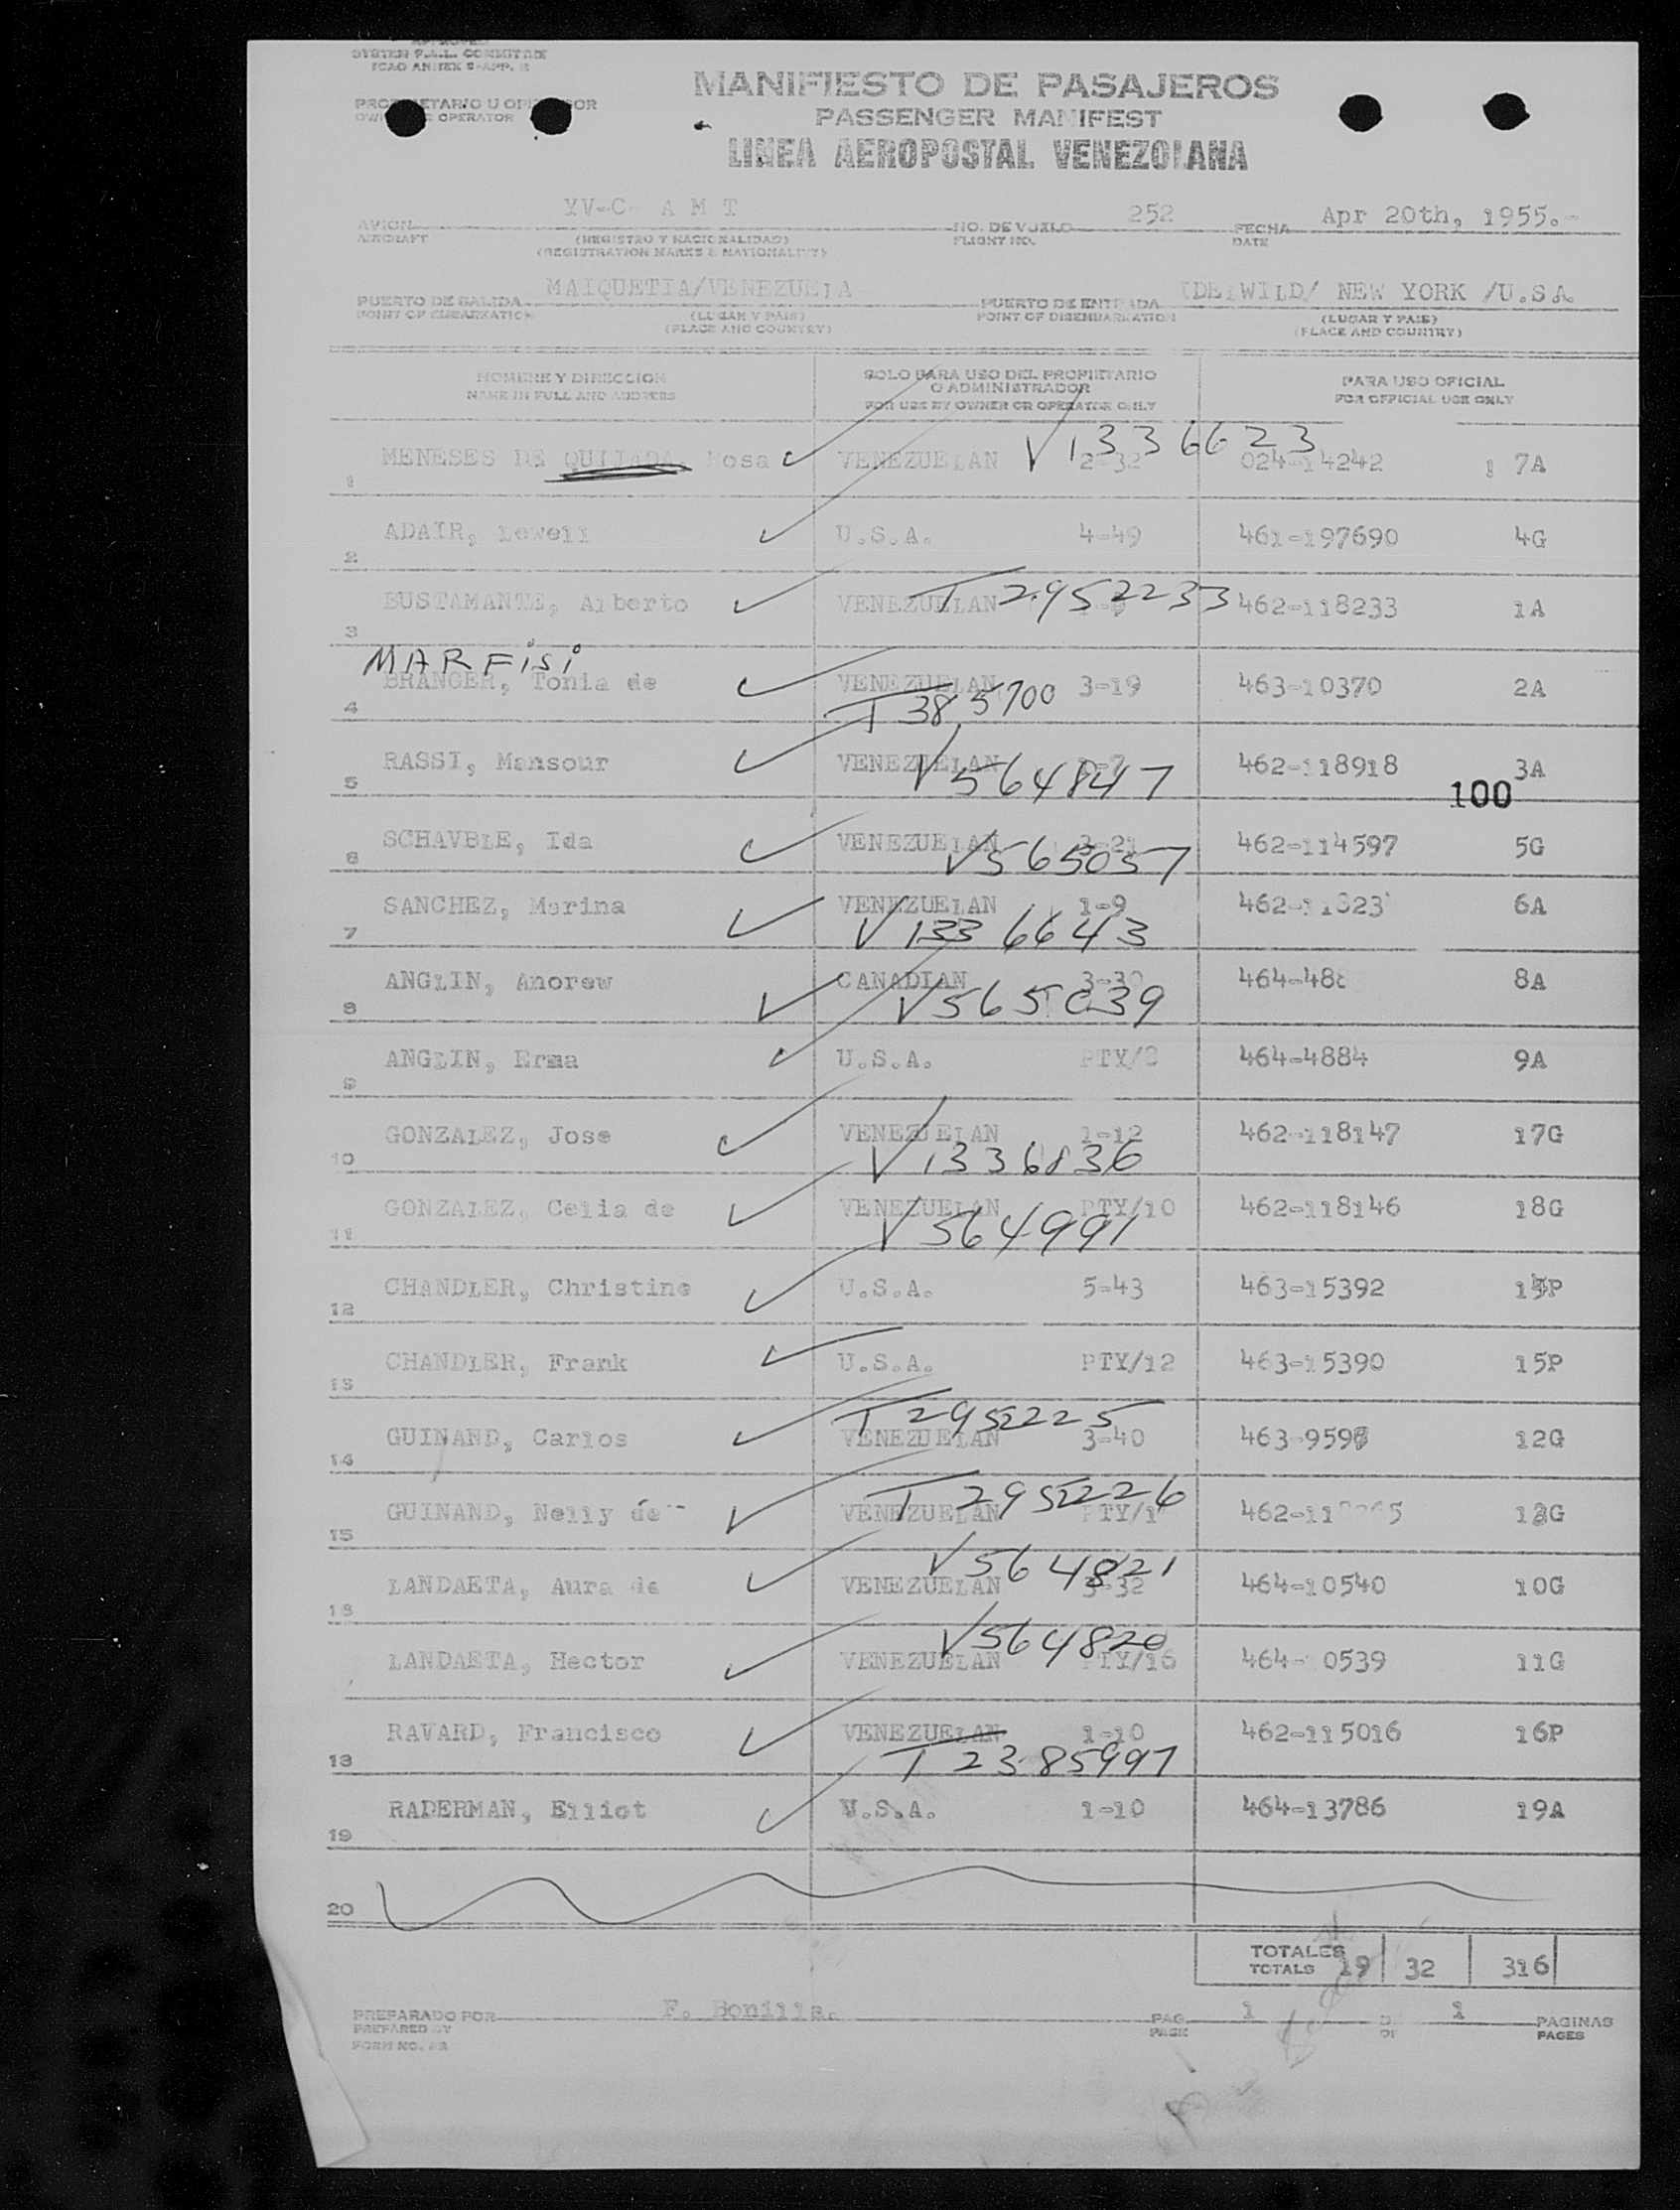 SYSTEM F.A.L. COMMITTEE
ICAO ANNEX 9-APP.
PROPIETARIO U OPERADOR
OWNER OPERATOR
MANIFIESTO DE PASAJEROS
PASSENGER MANIFEST
LINEA AEROPOSTAL VENEZOLANA
AVION YV-C- A M T NO. DE VUELO 252 FECHA Apr 20th, 1955.-
AIRCRAFT (REGISTRO Y NACIONALIDAD) FLIGHT NO. DATE
(REGISTRATION MARKS & NATIONALITY)
PUERTO DE SALIDA MAIQUETIA/VENEZUELA PUERTO DE ENTRADA IDELWILD/ NEW YORK /U.S.A
POINT OF EMBARKATION (LUGAR Y PAIS) POINT OF DISEMBARKATION (LUGAR Y PAIS)
(PLACE AND COUNTRY) (PLACE AND COUNTRY)
NOMBRE Y DIRECCION SOLO PARA USO DEL PROPIETARIO PARA USO OFICIAL
O ADMINISTRADOR
NAME IN FULL AND ADDRESS FOR USE BY OWNER OR OPERATOR ONLY FOR OFFICIAL USE ONLY
V 1336623
1 MENESES DE QUIJADA, Rosa VENEZUELAN 2-32 024-14242 1 7A
2 ADAIR, Lowell U.S.A. 4-49 461-197690 4G
T 2952233
3 BUSTAMANTE, Alberto VENEZUELAN 462-118233 1A
MARFISI
4 BRANGER, Tonia de VENEZUELAN 3-19 463-10370 2A
T 385700
5 RASSI, Mansour VENEZUELAN 462-118918 3A
V 564847
100
6 SCHAVBLE, Ida VENEZUELAN 3-21 462-114597 5G
V 565057
7 SANCHEZ, Marina VENEZUELAN 1-9 6A
V 1336643
8 ANGLIN, Andrew CANADIAN 3-30 8A
V 565039
9 ANGLIN, Erma U.S.A. 464-4884 9A
10 GONZALEZ, Jose VENEZUELAN 1-12 462-118147 17G
V 1336836
11 GONZALEZ, Celia de VENEZUELAN PTY/10 462-118146 18G
V 564991
12 CHANDLER, Christine U.S.A. 5-43 463-15392 14P
13 CHANDLER, Frank U.S.A. PTY/12 463-15390 15P
T 2952225
14 GUINAND, Carlos VENEZUELAN 3-40 12G
T 2952226
15 GUINAND, Nelly de VENEZUELAN 13G
V 564821
16 LANDAETA, Aura de VENEZUELAN 3-32 464-10540 10G
V 564820
LANDAETA, Hector VENEZUELAN PTY/16 464- 0539 11G
18 RAVARD, Francisco VENEZUELAN 1-10 462-115016 16P
T 2385997
19 RADERMAN, Elliot U.S.A. 1-10 464-13786 19A
20
TOTALES
TOTALS 19 32 316
PREPARADO POR F. Bonilla. PAG. 1 D 1 PAGINAS
PREPARED BY PAGE OF PAGES
FORM NO.